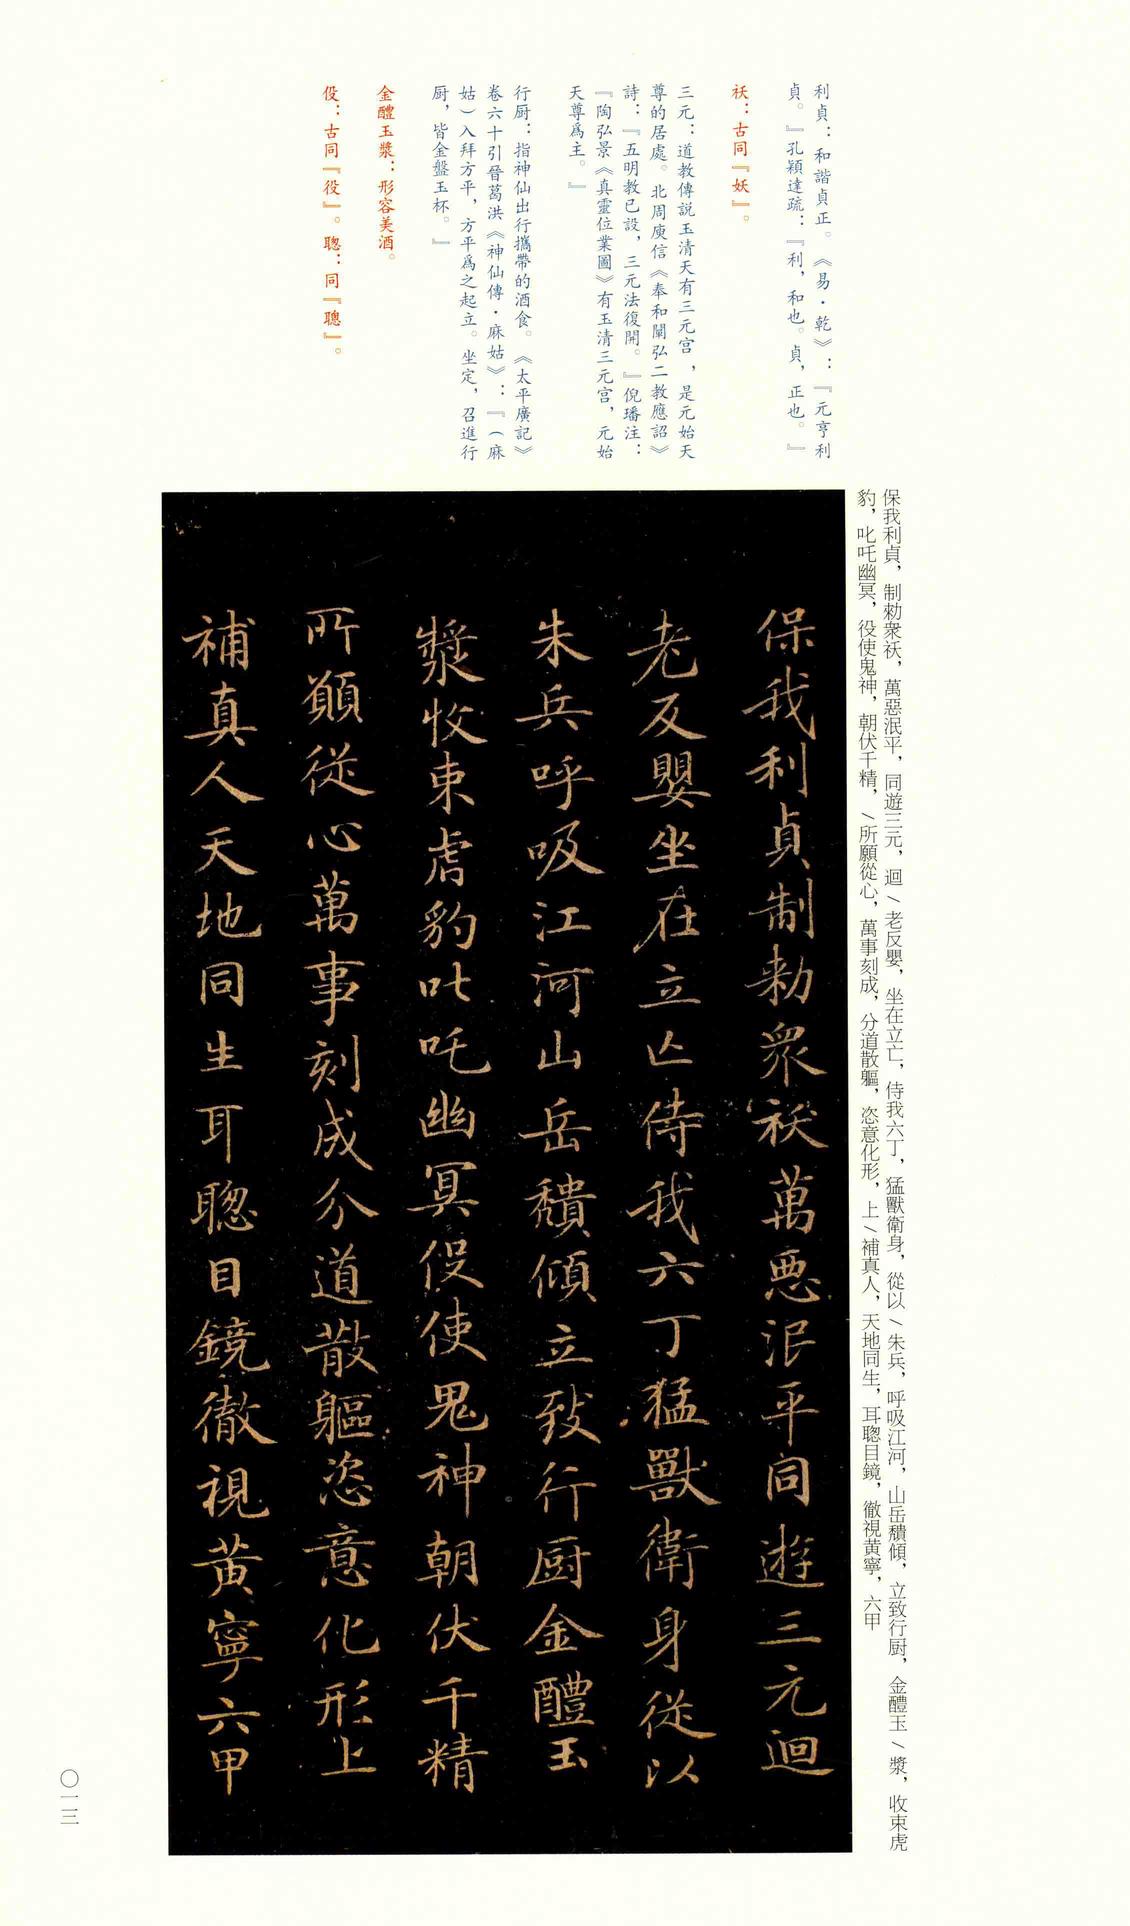 利貞：和諧貞正。《易·乾》：『元亨利
貞。』孔穎達疏：『利，和也。貞，正也。』
祅：古同『妖』。
三元：道教傳説玉清天有三元宫，是元始天
尊的居處。北周庾信《奉和闡弘二教應詔》
詩：『五明教已設，三元法復開。』倪璠注：
『陶弘景《真靈位業圖》有玉清三元宫，元始
天尊爲主。』
行厨：指神仙出行攜帶的酒食。《太平廣記》
卷六十引晉葛洪《神仙傳·麻姑》：『（麻
姑）入拜方平，方平爲之起立。坐定，召進行
厨，皆金盤玉杯。』
金醴玉漿：形容美酒。
伇：古同『役』。聦：同『聰』。
保我利貞，制勑衆祅，萬惡泯平，同遊三元，迴\老反嬰，坐在立亡，侍我六丁，猛獸衛身，從以\朱兵，呼吸江河，山岳穨傾，立致行厨，金醴玉\漿，收束虎
豹，叱吒幽冥，役使鬼神，朝伏千精，\所願從心，萬事刻成，分道散軀，恣意化形，上\補真人，天地同生，耳聦目鏡，徹視黄寧，六甲
保我利貞制勑衆祅萬惡泯平同遊三元迴
老反嬰坐在立亡侍我六丁猛獸衛身從以
朱兵呼吸江河山岳穨傾立致行厨金醴玉
漿收束虎豹叱吒幽冥伇使鬼神朝伏千精
所願從心萬事刻成分道散軀恣意化形上
補真人天地同生耳聦目鏡徹視黄寧六甲
〇一三